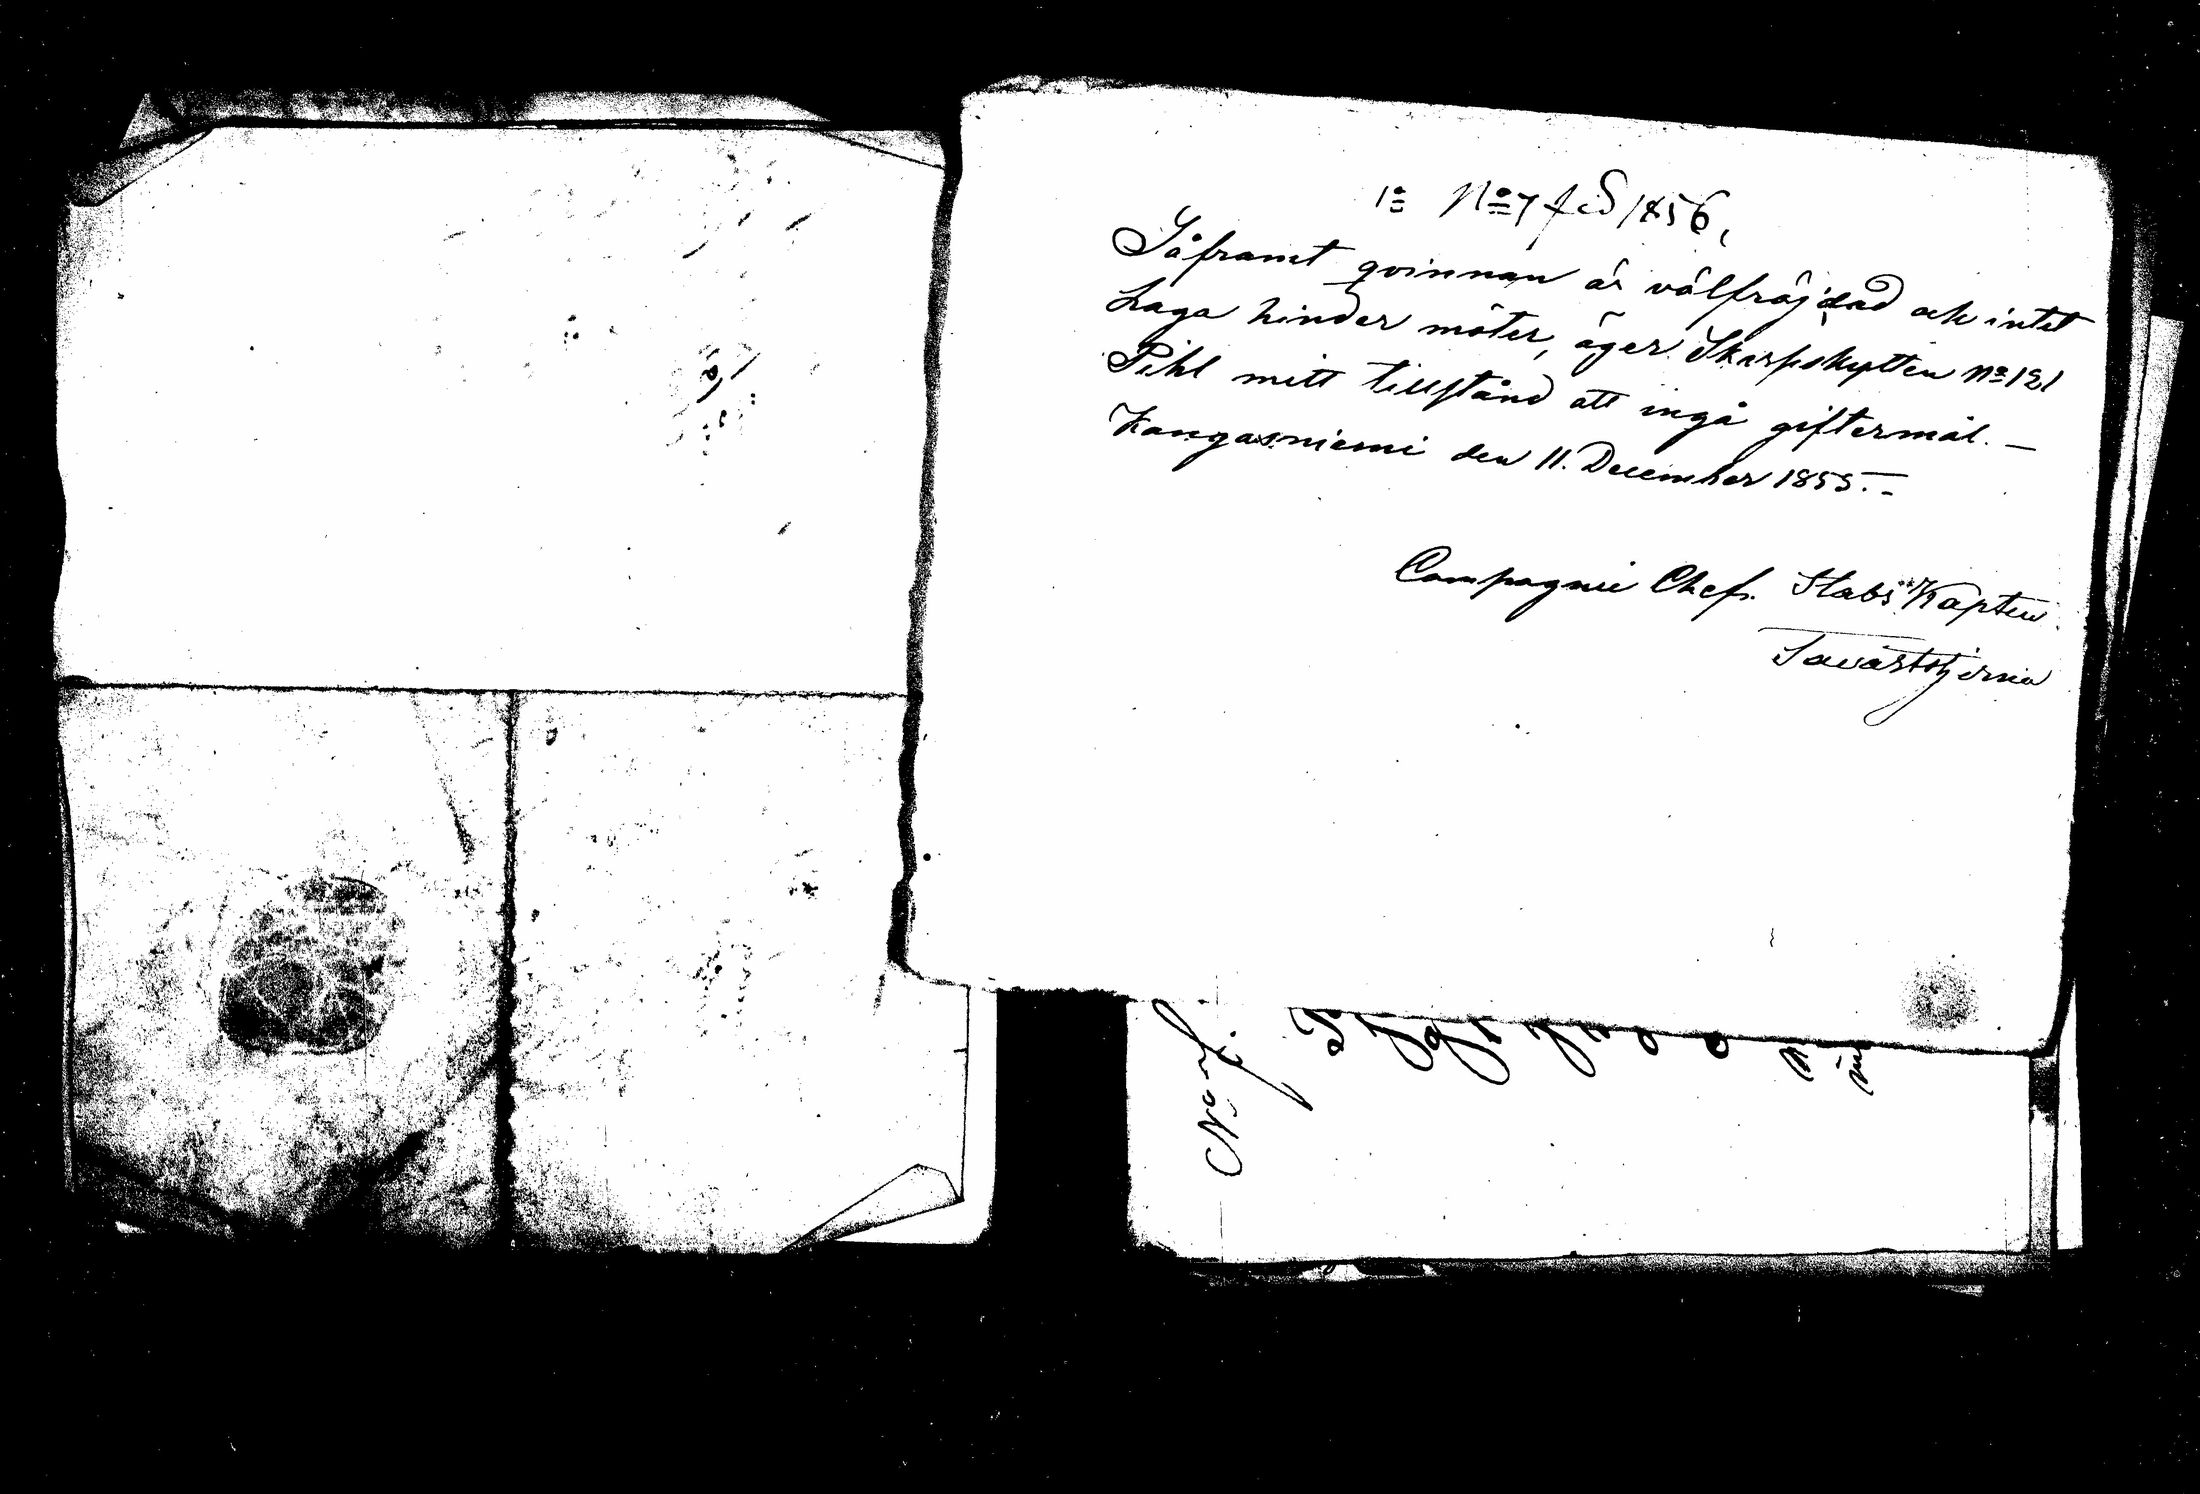 1º Nº 7 f. S 1856,
Såframt qvinnan är välfräjdad och intet
Laga hinder möter, äger Skarpskytten Nº 121
Pihl mitt tillstånd att ingå giftermål. —
Kangasniemi den 11. December 1855. —
Compagnie Chef. Stabs Kapten
Tavaststjerna